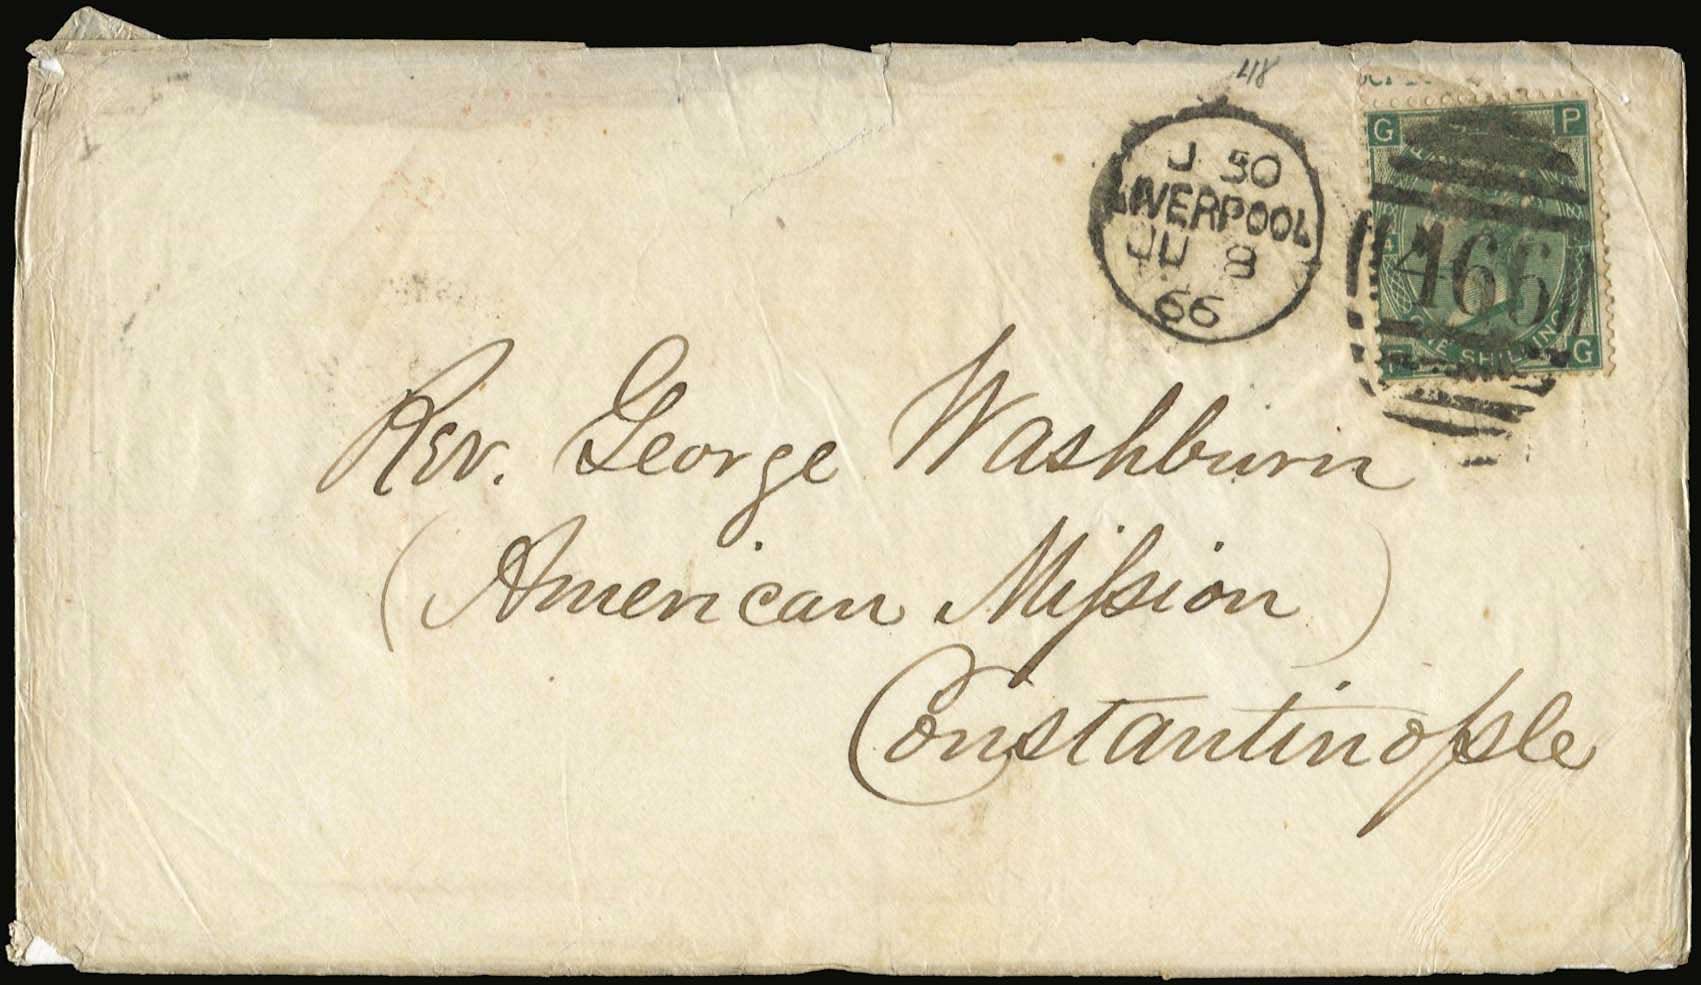 48
G P
J 50
LIVERPOOL
JU 8
66
466
4
ONE SHILLING
G
Rev. George Washburn
(American Miſsion)
Constantinople